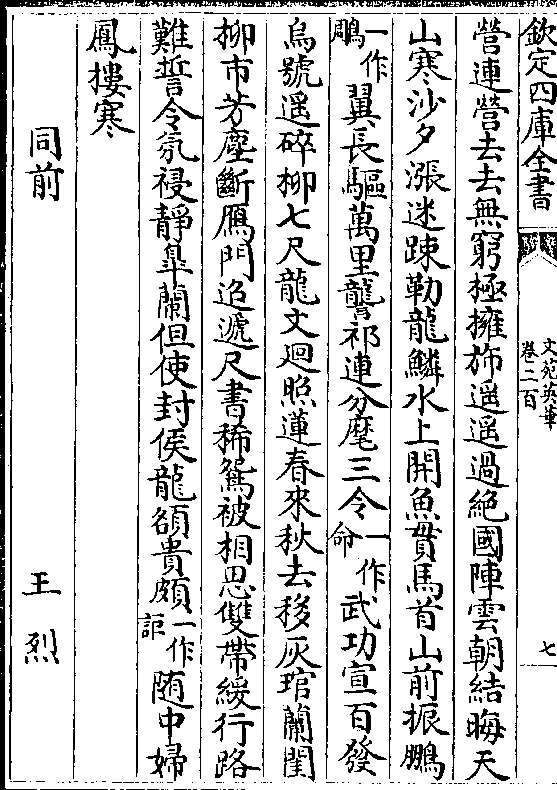 欽定四庫全書
文苑英華
卷二百
七
營連營去去無窮極擁斾遥遥過絶國陣雲朝結晦天
山寒沙夕漲迷踈勒龍鱗水上開魚貫馬首山前振鵬
一作鵰翼長驅萬里讋祁連分麾三令一作命武功宣百發
烏號遥碎柳七尺龍文迥照蓮春來秋去移灰琯蘭閨
柳市芳塵斷鴈門迢遞尺書稀鴛被相思雙帶緩行路
難誓令氛祲靜臯蘭但使封侯龍頟貴頗一作詎随中婦
鳳摟寒
同前
王烈